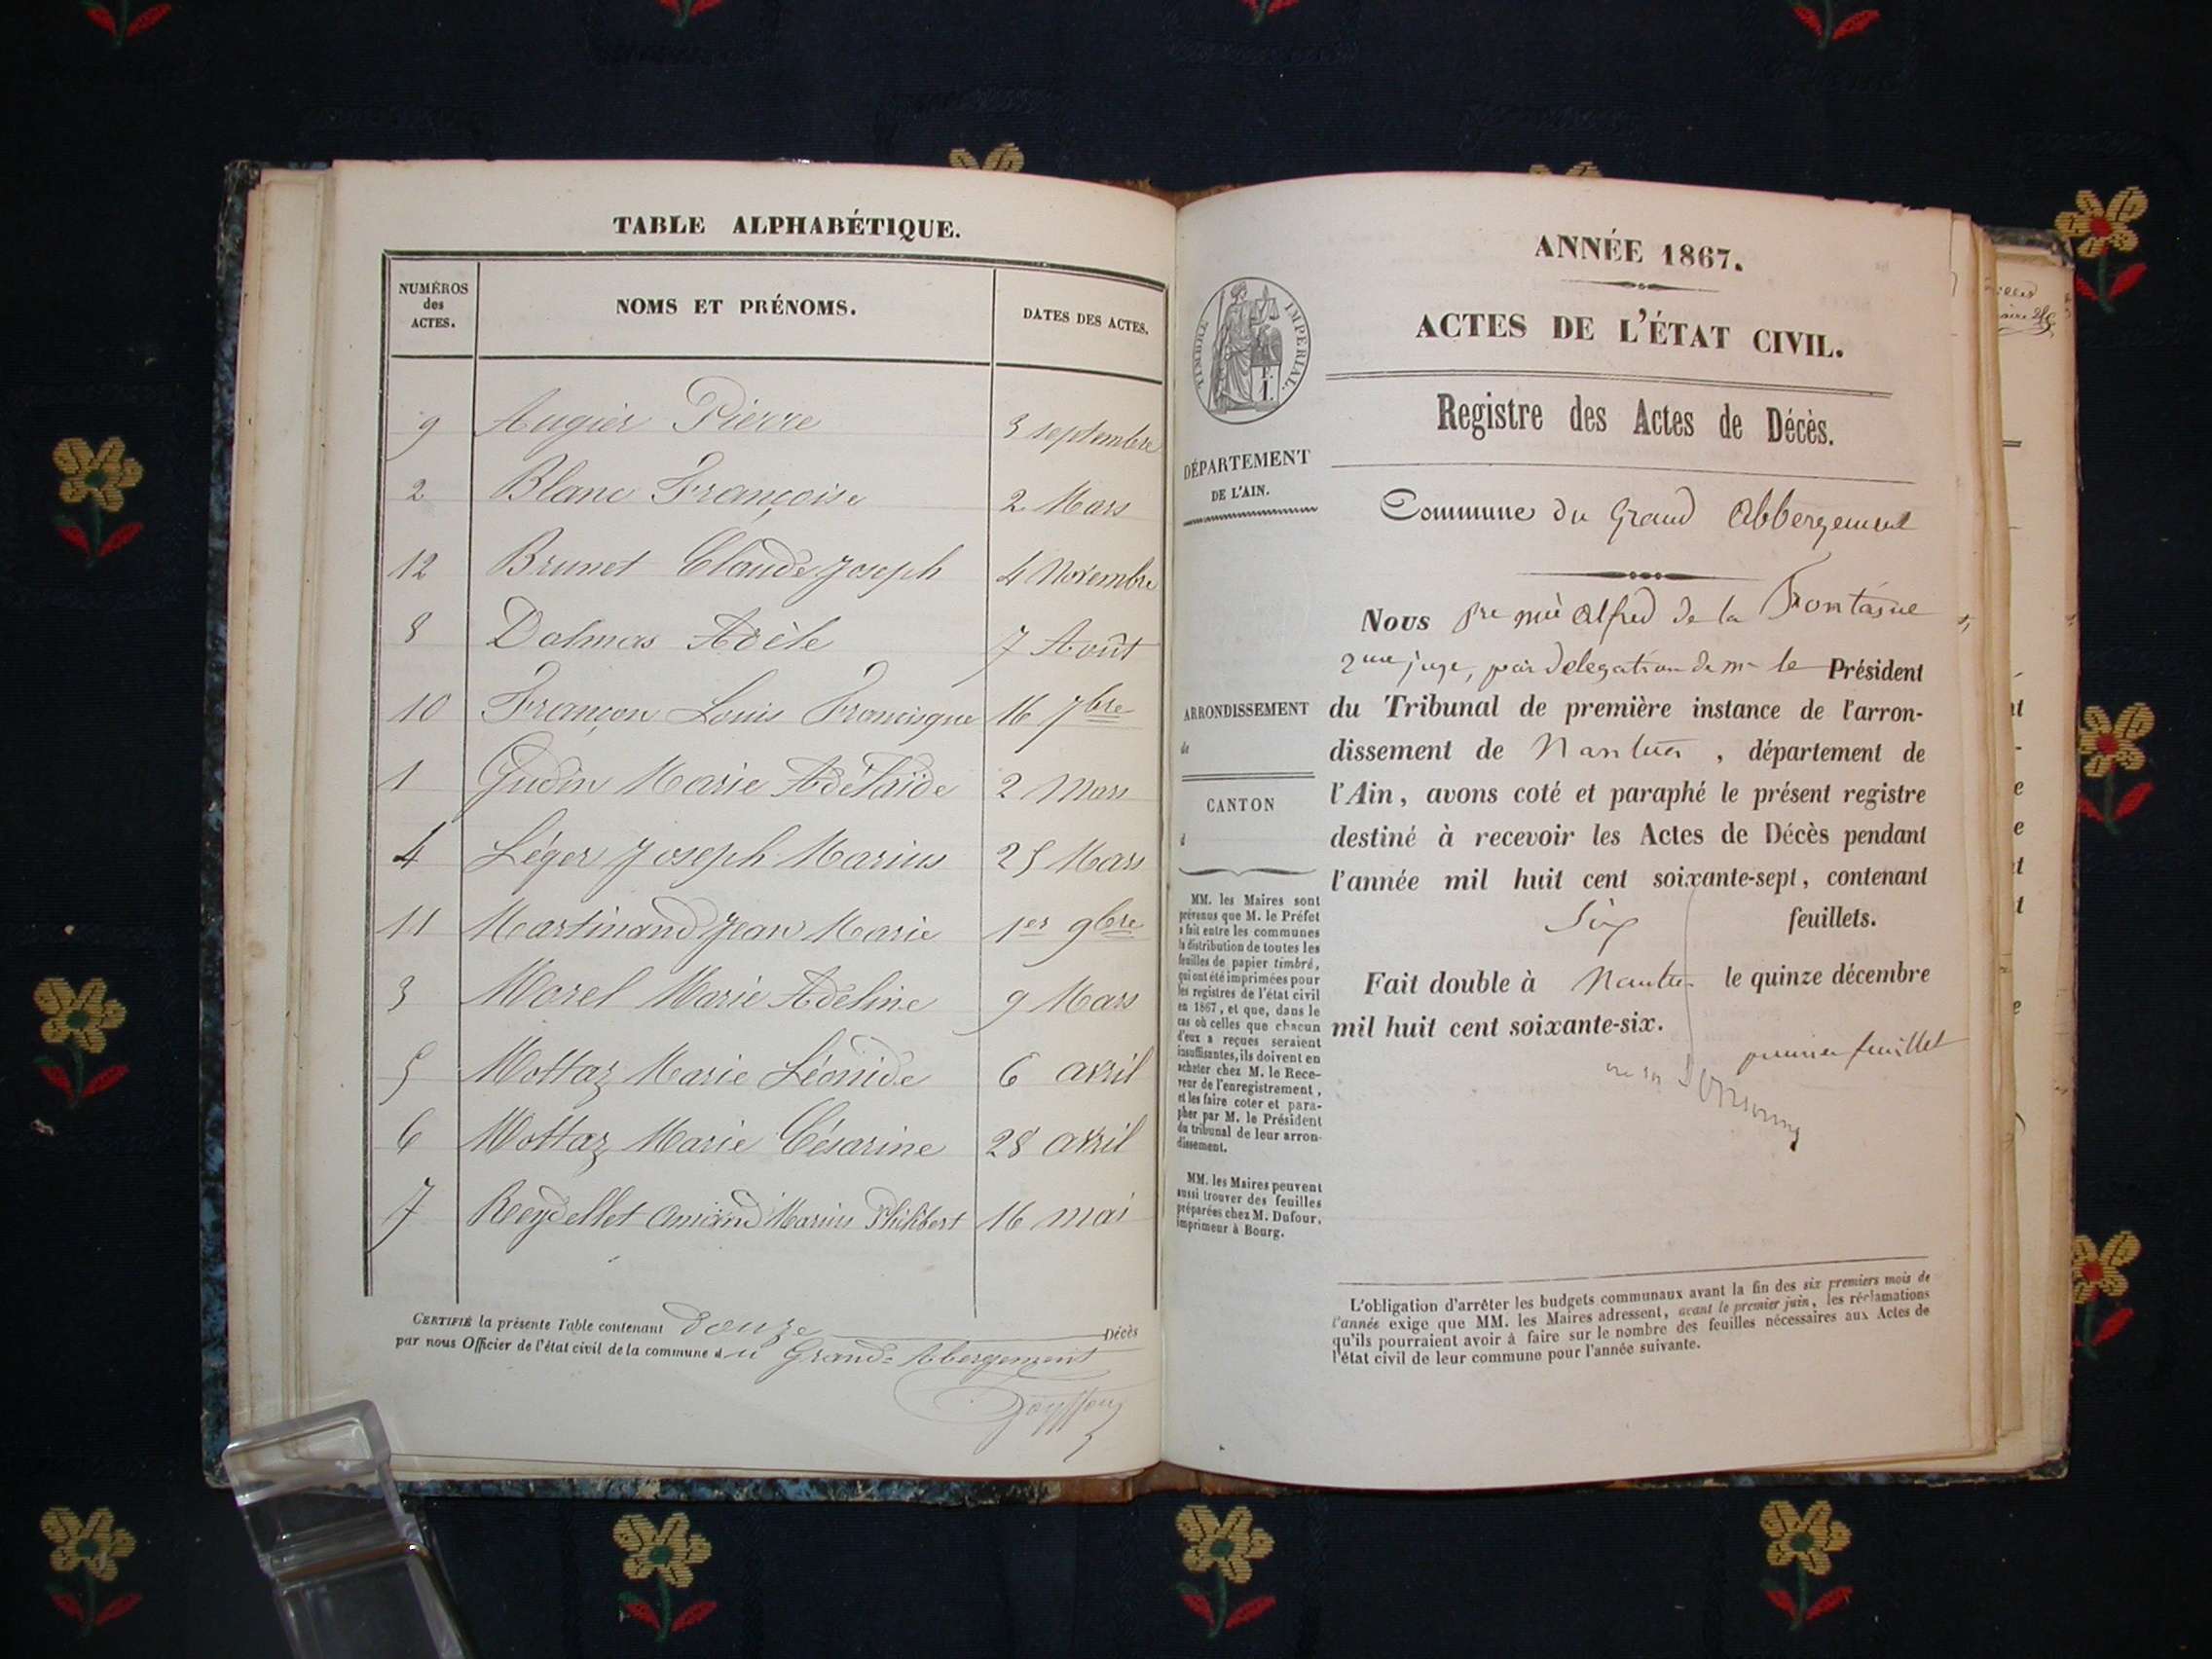 TABLE ALPHABÉTIQUE.
NUMÉROS
des
ACTES.
NOMS ET PRÉNOMS.
DATES DES ACTES.
9 Augier Pierre 3 septembre
2 Blanc Françoise 2 Mars
12 Brunet Claude Joseph 4 Novembre
8 Dalmas Adèle 7 Août
10 Françon Louis Francisque 16 7bre
1 Gudin Marie Adélaïde 2 Mars
4 Léger Joseph Marius 25 Mars
11 Martinand Jean Marie 1er 9bre
3 Morel Marie Adeline 9 Mars
5 Mottaz Marie Léonide 6 avril
6 Mottaz Marie Césarine 28 avril
7 Reydellet Amand Marius Philibert 16 mai
CERTIFIÉ la présente Table contenant douze Décès
par nous Officier de l'état civil de la commune du Grand-Abergement
ANNÉE 1867.
ACTES DE L'ÉTAT CIVIL.
Registre des Actes de Décès.
TIMBRE IMPÉRIAL.
DÉPARTEMENT
DE L'AIN.
ARRONDISSEMENT
de
CANTON
d
MM. les Maires sont
prévenus que M. le Préfet
a fait entre les communes
la distribution de toutes les
feuilles de papier timbré,
qui ont été imprimées pour
les registres de l'état civil
en 1867, et que, dans le
cas où celles que chacun
d'eux a reçues seraient
insuffisantes, ils doivent en
acheter chez M. le Rece-
veur de l'enregistrement,
et les faire coter et para-
pher par M. le Président
du tribunal de leur arron-
dissement.
MM. les Maires peuvent
aussi trouver des feuilles
préparées chez M. Dufour,
imprimeur à Bourg.
Commune du Grand Abbergement
Nous Alfred de la
2me juge, par délégation de mr le Président
du Tribunal de première instance de l'arron-
dissement de Nantua, département de
l'Ain, avons coté et paraphé le présent registre
destiné à recevoir les Actes de Décès pendant
l'année mil huit cent soixante-sept, contenant
Six feuillets.
Fait double à Nantua le quinze décembre
mil huit cent soixante-six.
premier feuillet
L'obligation d'arrêter les budgets communaux avant la fin des six premiers mois de
l'année exige que MM. les Maires adressent, avant le premier juin, les réclamations
qu'ils pourraient avoir à faire sur le nombre des feuilles nécessaires aux Actes de
l'état civil de leur commune pour l'année suivante.